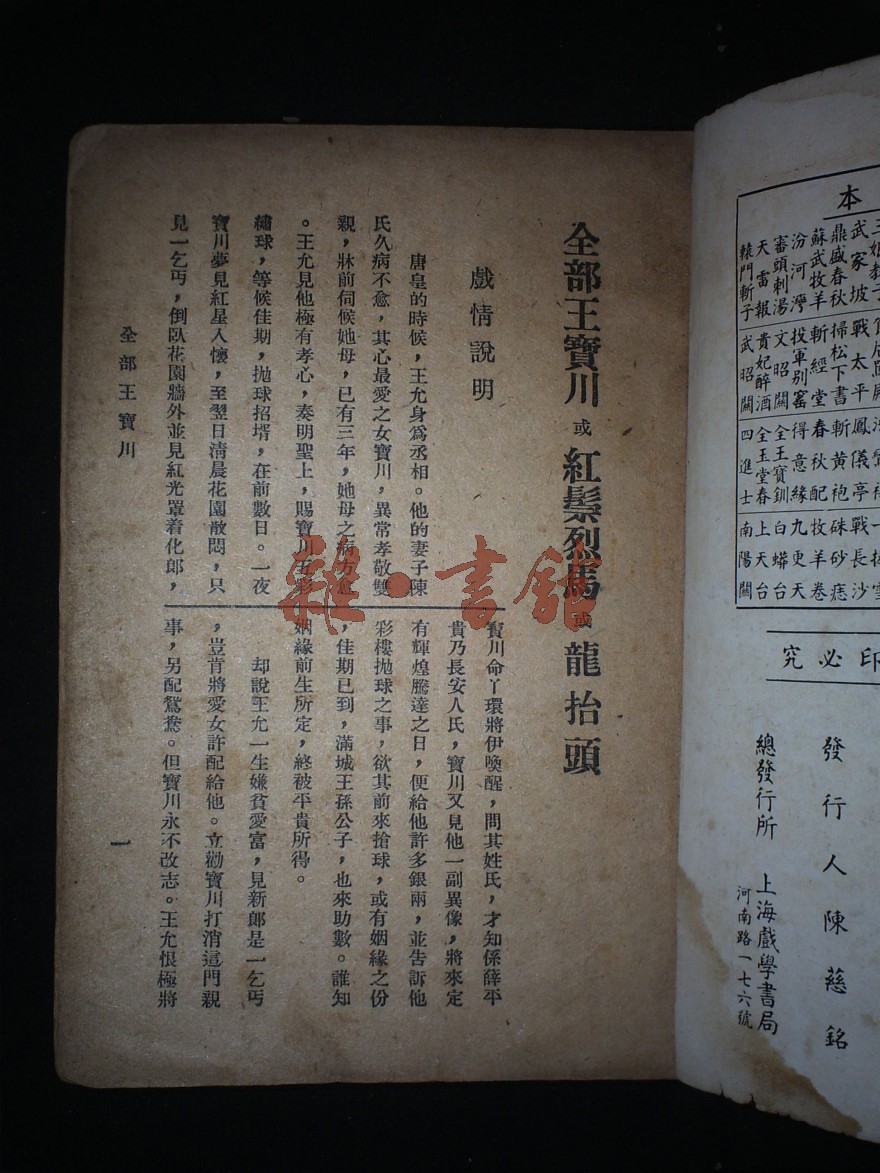 全部王寶川 或 紅鬃烈馬 或 龍抬頭
戲情說明
唐皇的時候，王允身爲丞相。他的妻子陳
氏久病不愈，其心最愛之女寶川，異常孝敬雙
親，牀前伺候她母，已有三年，她母之病方愈
。王允見他極有孝心，奏明聖上，賜寶川五彩
繡球，等候佳期，拋球招壻，在前數日。一夜
寶川夢見紅星入懷，至翌日清晨花園散悶，只
見一乞丐，倒臥花園牆外並見紅光罩着化郎，
寶川命丫環將伊喚醒，問其姓氏，才知係薛平
貴乃長安人氏，寶川又見他一副異像，將來定
有輝煌騰達之日，便給他許多銀兩，並告訴他
彩樓拋球之事，欲其前來搶球，或有姻緣之份
，佳期已到，滿城王孫公子，也來助數。誰知
姻緣前生所定，終被平貴所得。
却說王允一生嫌貧愛富，見新郎是一乞丐
，豈肯將愛女許配給他。立勸寶川打消這門親
事，另配鴛鴦。但寶川永不改志。王允恨極將
全部王寶川
一
雜·書館
本
武家坡
鼎盛春秋
蘇武牧羊
汾河灣
審頭刺湯
天雷報
轅門斬子
戰太平
掃松下書
斬經堂
投軍别窰
文昭關
貴妃醉酒
武昭關
鳳儀亭
斬黃袍
春秋配
得意緣
全王寶釧
全玉堂春
四進士
戰長沙
硃砂痣
牧羊卷
九更天
白蟒台
上天台
南陽關
印必究
發行人陳慈銘
總發行所 上海戲學書局
河南路一七六號